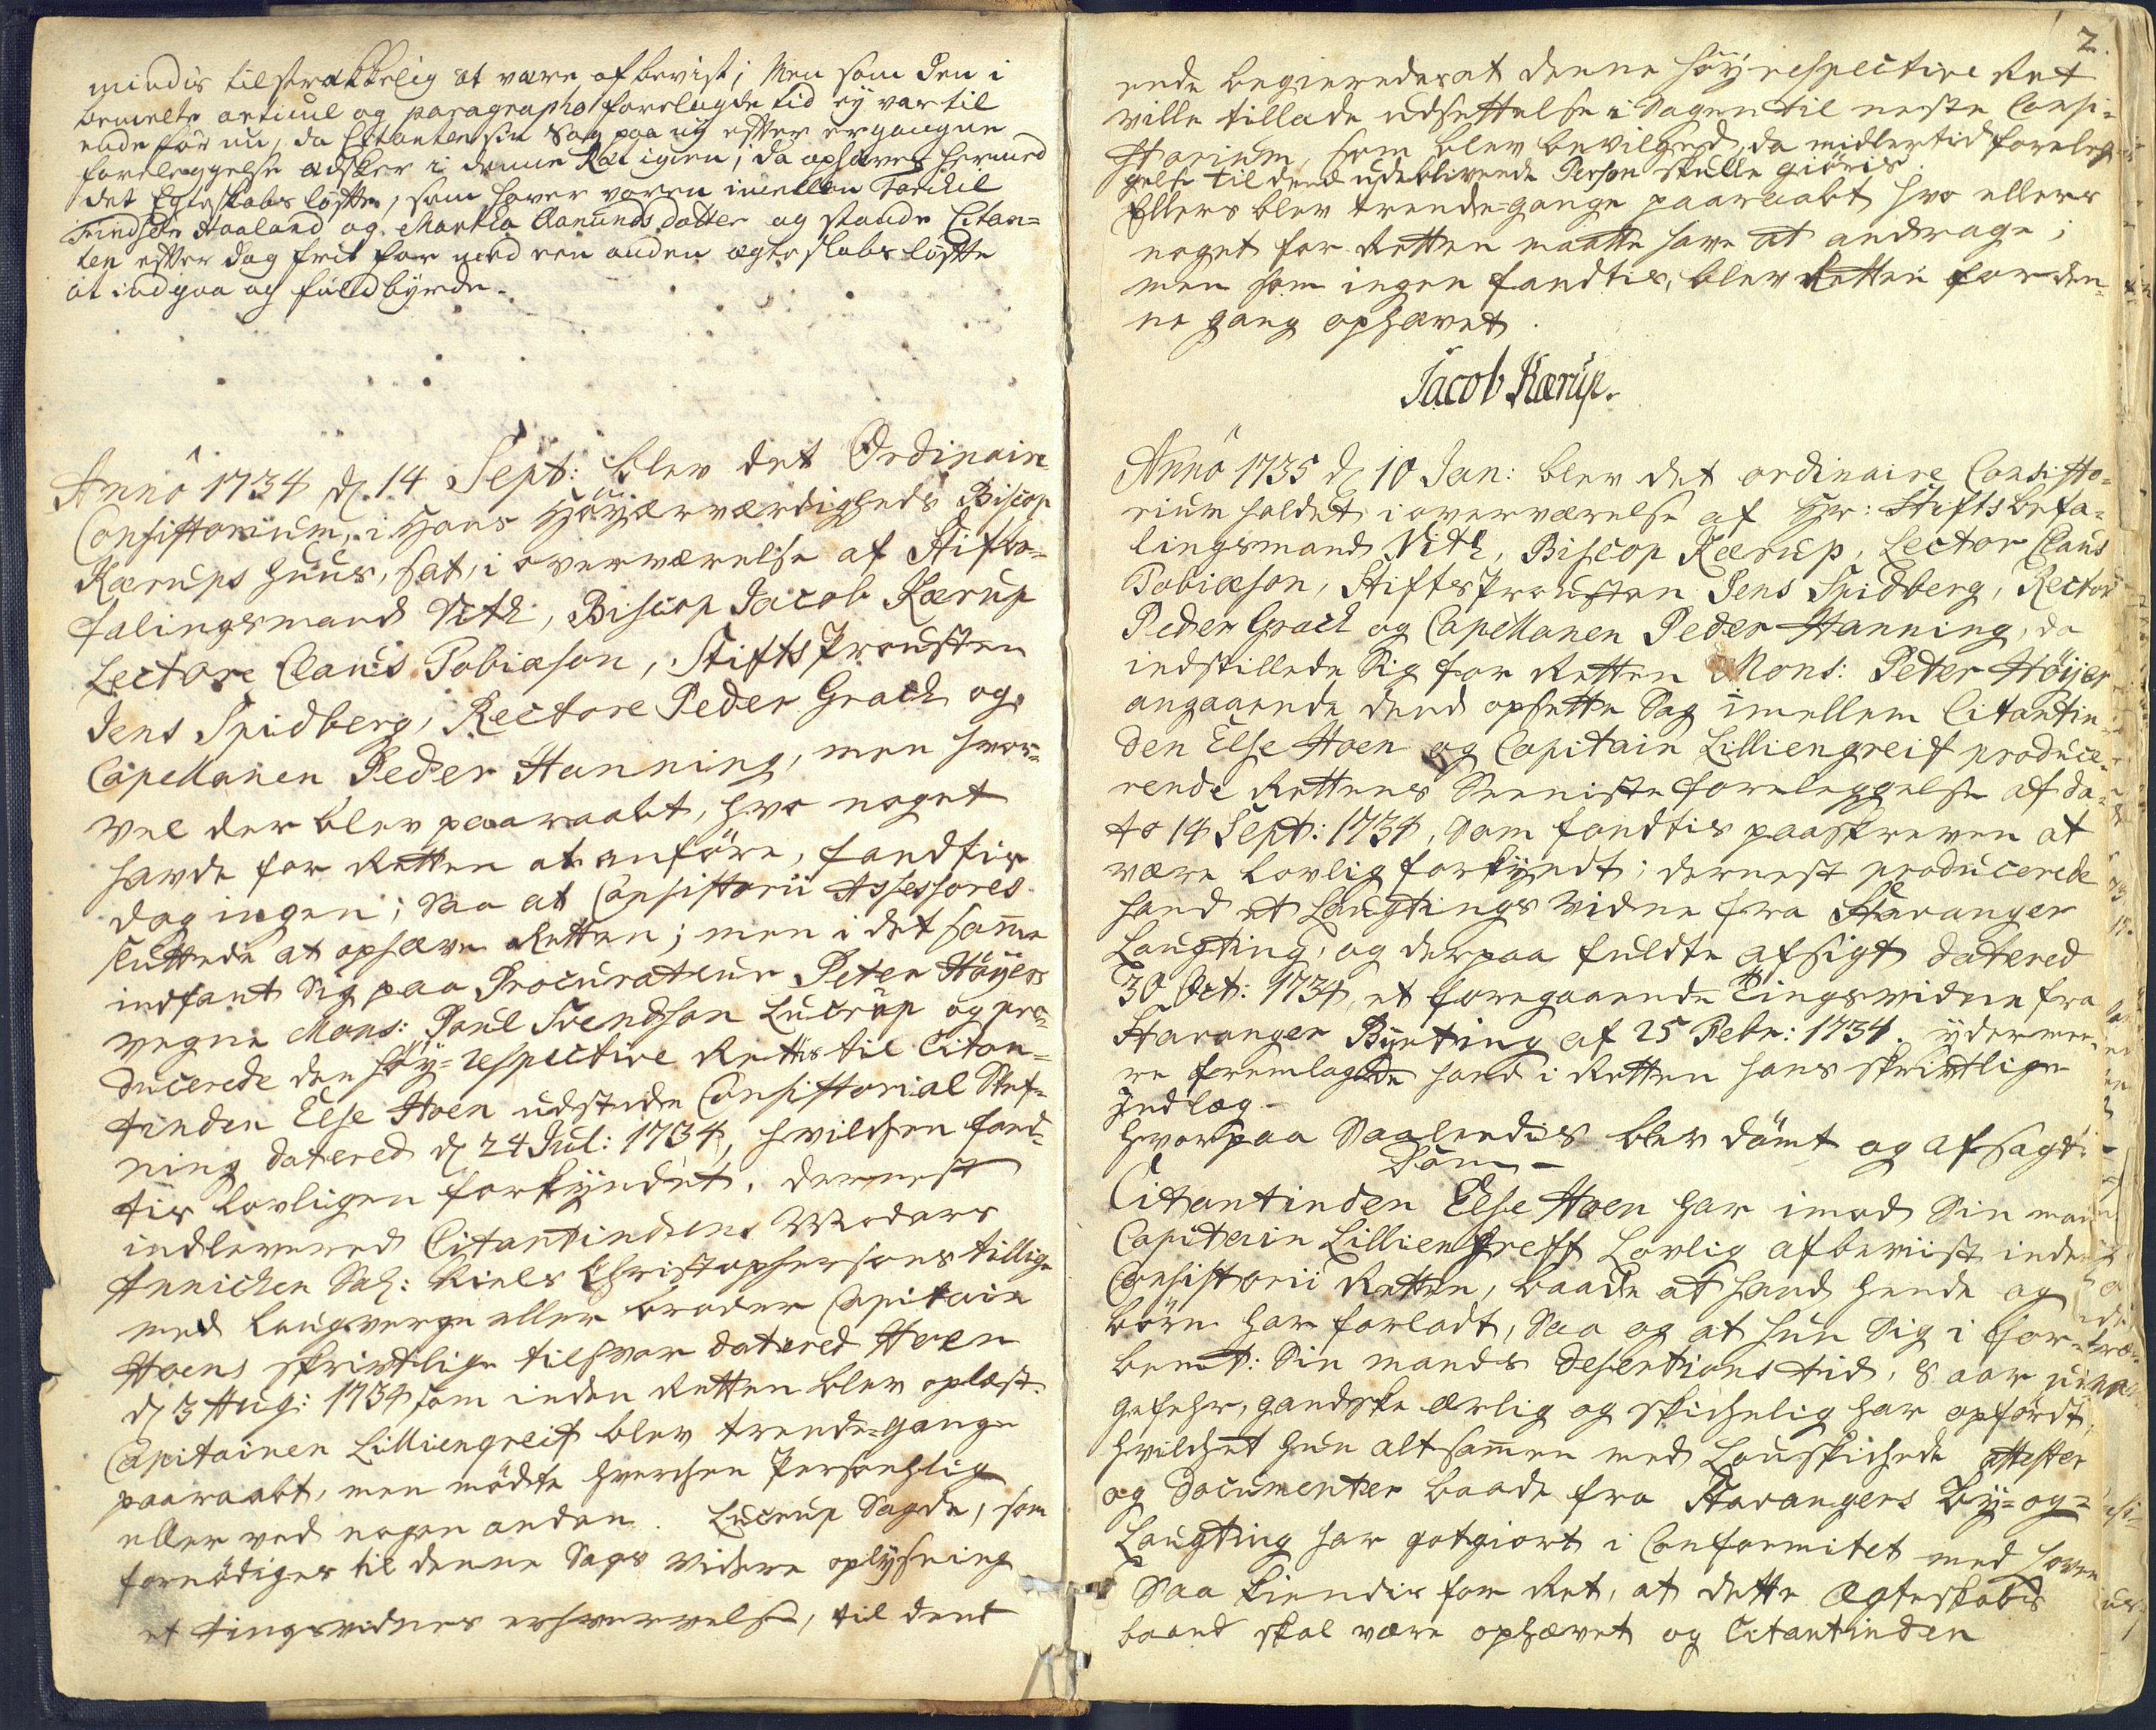 mindis tilstrækkelig at være afbevist; Men som den i
bemelte articul og paragrapho forelagde tid ey var til
ende før nu, da Citanten sin Sag paa ny efter ergangne
foreleggelse æsker i denne Ræt igien; da ophæves hermed
det Egteskabs løfte, som haver voren imellem Torchil
Aaland og Martha Aanunds datter og stande Citan=
ten efter dag frit for med een anden ægteskabs løfte
at indgaa og fuldbyrde.
Annô 1734 d. 14 Sept: blev det Ordinaire
Consistorium, i Hans Höyærværdigheds Biscop
Kærups Huus, sat, i overværelse af Stifts=
falingsmand Vitk, Biscop Jacob Kærup
Lectore Claus Tobiæson, Stifts Prousten
Jens Spidberg, Rectore Peder Grack og
Capellanen Peder Hanning, men hvor=
vel der blev paaraabt, hvo noget
havde for Retten at anföre, fandtis
dog ingen; Saa at Consistorii Assessores
sluttede at ophæve Retten; men i det samme
indfant Sig paa Procurateur Peter Höyers
vegne Mons: Poul Svendson Lucrup og pro=
ducerede den höy=respective Rettis til Citan=
tinden Else Hoen udstæde Consistorial Stef=
ning datered d. 24 Jul: 1734, hvilchen fand=
tis lovligen forkyndet. dernest
indlevered Citantindens Moders
Annichen Sal: Niels Christophersøns tillige
med laugverge eller broder Capitain
Hoens skrivtlige tilsvar datered Hoen
d. 3 Aug: 1734 som inden Retten blev oplæst.
Capitainen Lilliengreif blev trende=gange
paaraabt, men mödte hverchen Personlig
eller ved nogen anden. Lucrup Sagde, som
fornödiges til denne Sags videre oplysning
et tingsvidnes erhvervelse, til dend
2.
ende begieredes at denne höyrespective Ret
ville tillade udsettelse i Sagen til neste Consi=
storium, som blev bevilged, da midlertid foreleg=
gelse til dend udeblivende Person skulle giöris.
Ellers blev trende=gange paaraabt hvo ellers
noget for Retten maatte have at andrage;
men som ingen fandtis, blev Retten for den=
ne gang ophævet.
Jacob Kærup.
Annô 1735 d. 10 Jan: blev det ordinaire Consisto=
rium holdet i overværelse af Hr: Stiftsbefa=
lingsmand Vitk, Biscop Kærup, Lector Claus
Tobiæson, Stifts Prousten Jens Spidberg, Rector
Peder Grack og Capellanen Peder Hanning, da
indstillede Sig for Retten Mons: Peter Höyer
angaaende dend opsette Sag imellem Citantin
den Else Hoen og Capitain Lilliengreif produce=
rende Rettens Seeniste foreleggelse af da=
to 14 Sept: 1734, Som fandtis paaskreven at
være Lovlig forkyndt; dernest producerede
hand et Laugtings vidne fra Stavanger
Laugting, og derpaa fuldte afsigt datered
30 Oct: 1734, et foregaaende Tingsvidne fra
Stavanger Byeting af 25 Febr: 1734. ydermee=
re fremlagde hand i Retten hans skrivtlige
Indlæg.
hvorpaa Saaledis blev dömt og afsagt:
Dom.
Citantinden Else Hoen har imod Sin mand
Capitain Lilliengreff Lovlig afbeviist inden
Consistorii Retten, baade at hand hende og
börn har forladt, Saa og at hun Sig i for=
bemt: Sin mands Desertions tid, 8 aar uin=
gefehr, gandske ærlig og skichelig har opfördt,
hvilchet hun altsammen med Lauskichede attester
og Documenter baade fra Stavangers by= og=
Laugting har gotgiort i Conformitet med Loven
Saa kiendis for Ret, at dette Ægteskabs
baand skal være ophævet og Citantinden